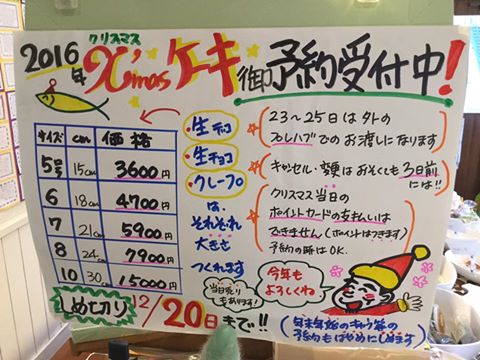 2016年
クリスマス
X'mas ケーキ 御予約受付中!
サイズ cm 価格
5号 15cm 3600円
6 18cm 4700円
7 21cm 5900円
8 24cm 7900円
10 30cm 15000円
しめ切り 12/20日まで!!
・生チョコ
・生チョコ
・クレープ
は
それぞれ
大きさ
つくれます
当日売り
もあります!
☆23~25日は外の
プレハブでのお渡しになります
☆キャンセル・変更はおそくも3日前
には!!
☆クリスマス当日の
ポイントカードの支払いは
できません(ポイントはつきます)
予約の時はOK.
今年も
よろしくね
(年末年始の
予約もはやめにしめます)